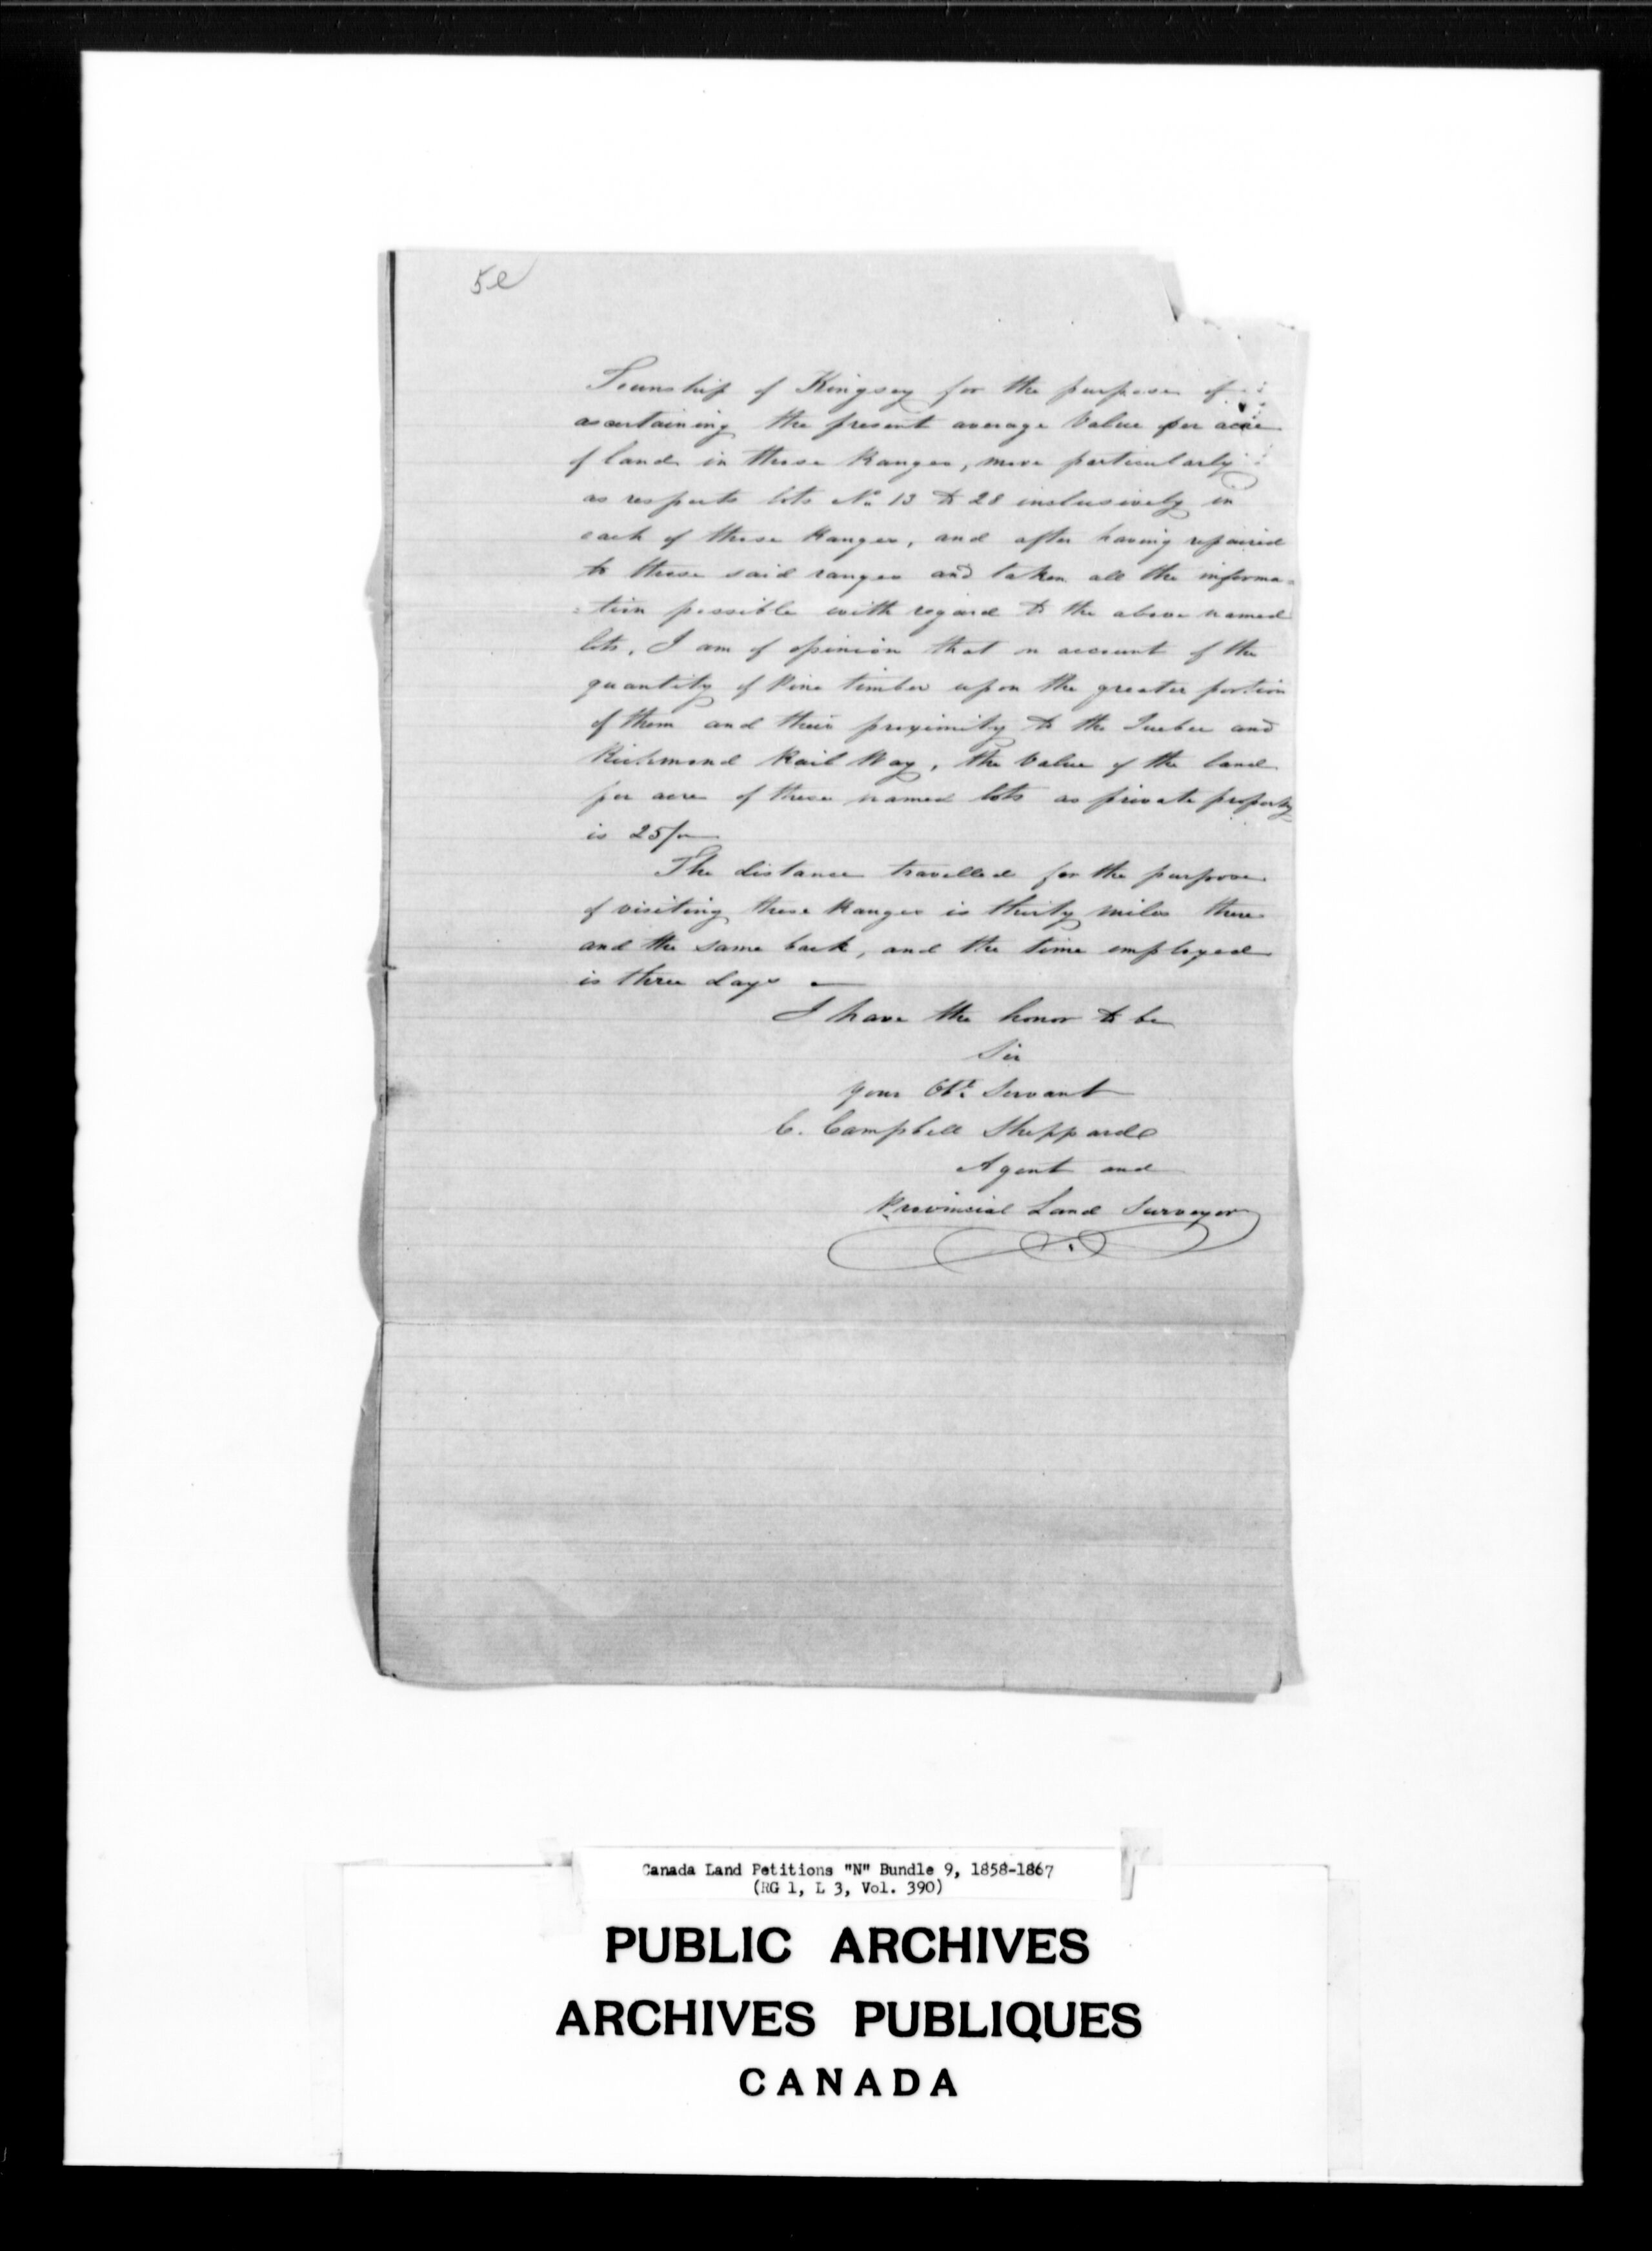 5e
Township of Kingsey for the purpose of
ascertaining the present average Value per acre
of land in these Ranges, more particularly
as respects lots No. 13 to 28 inclusively in
each of these Ranges, and after having repaired
to these said ranges and taken all the informa=
=tion possible with regard to the above named
lots, I am of opinion that on account of the
quantity of Pine timber upon the greater portion
of them and their proximity to the Quebec and
Richmond Rail Way, the Value of the land
per acre of these named lots as private property
is 25/-
The distance travelled for the purpose
of visiting these Ranges is thirty miles there
and the same back, and the time employed
is three days —
I have the honor to be
Sir
your Obt. Servant
C. Campbell Sheppard
Agent and
Provincial Land Surveyor
Canada Land Petitions "N" Bundle 9, 1858-1867
(RG 1, L 3, Vol. 390)
PUBLIC ARCHIVES
ARCHIVES PUBLIQUES
CANADA